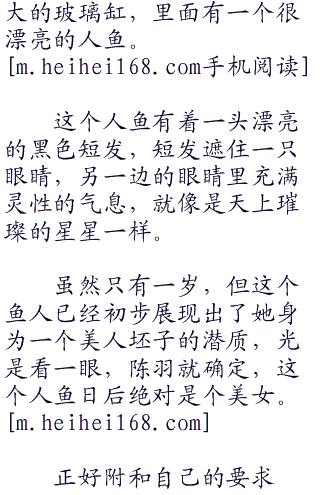 大的玻璃缸，里面有一个很
漂亮的人鱼。
[m.heihei168.com手机阅读]
这个人鱼有着一头漂亮
的黑色短发，短发遮住一只
眼睛，另一边的眼睛里充满
灵性的气息，就像是天上璀
璨的星星一样。
虽然只有一岁，但这个
鱼人已经初步展现出了她身
为一个美人坯子的潜质，光
是看一眼，陈羽就确定，这
个人鱼日后绝对是个美女。
[m.heihei168.com]
正好附和自己的要求